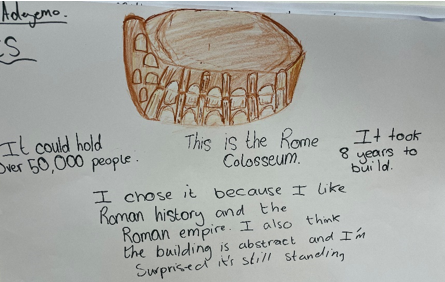 Adeyemo.
ES
It could hold
over 50,000 people.
This is the Rome
Colosseum.
It took
8 years to
build.
I chose it because I like
Roman history and the
Roman empire. I also think
the building is abstract and I'm
Surprised it's still standing